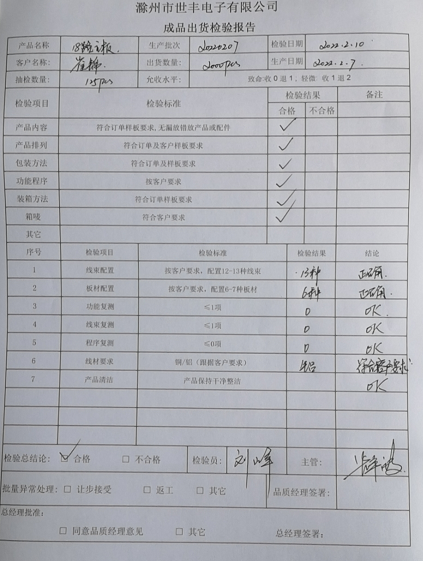 滁州市世丰电子有限公司
成品出货检验报告
产品名称 生产批次 20220207 检验日期 2022.2.10
客户名称: 出货数量: 2000pcs 生产日期 2022.2.7
抽检数量: 125pcs 允收水平: 致命:收0退1, 轻微: 收1退2
检验项目 检验标准 检验结果 备注
合格 不合格
产品内容 符合订单样板要求,无漏放错放产品或配件 ✓
产品排列 符合订单及客户样板要求 ✓
包装方法 符合订单及样板要求 ✓
功能程序 按客户要求 ✓
装箱方法 符合订单样板要求 ✓
箱唛 符合客户要求 ✓
其它
序号 检验项目 检验标准 检验结果 结论
1 线束配置 按客户要求，配置12-13种线束 13种 正确
2 板材配置 按客户要求，配置6-7种板材 6种 正确
3 功能复测 ≤1项 0 OK
4 线束复测 ≤1项 0 OK
5 程序复测 ≤0项 0 OK
6 线材要求 铜/铝（跟据客户要求） 铝 符合客户要求
7 产品清洁 产品保持干净整洁 OK
检验总结论: ☑ 合格 □ 不合格 检验员: 刘峰 主管:
批量异常处理: □ 让步接受 □ 返工 □ 其它 品质经理签署:
总经理批准:
□ 同意品质经理意见 □ 其它 总经理签署: